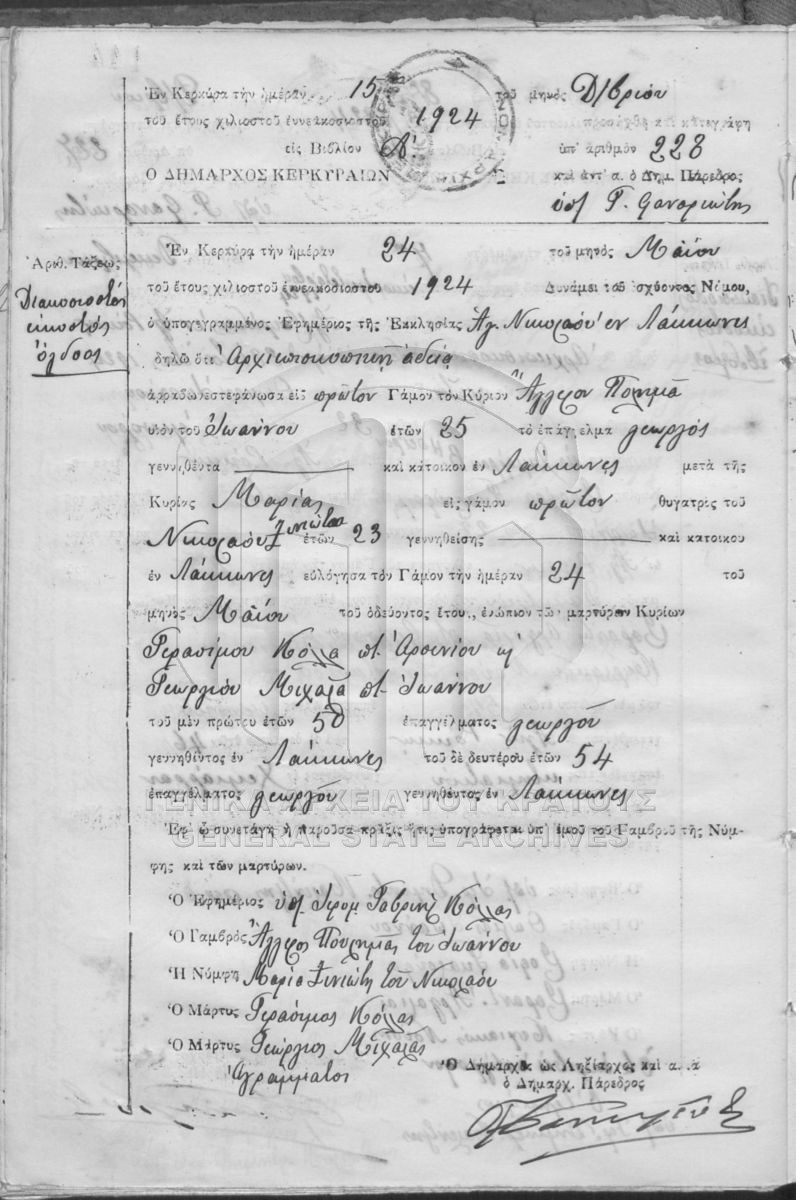 Ἐν Κερκύρᾳ τὴν ἡμέραν 15 τοῦ μηνὸς Δ/βρίου
τοῦ ἔτους χιλιοστοῦ ἐννεακοσιοστοῦ 1924 προσήχθη καὶ κατεγράφη
εἰς Βιβλίον Α' ὑπ' ἀριθμὸν 228
Ο ΔΗΜΑΡΧΟΣ ΚΕΡΚΥΡΑΙΩΝ καὶ ἀντ' α. ὁ Δημ. Πάρεδρος
ὑπ/ Γ. Φαναριώτης
Ἀριθ. Τάξεως
Διακοσιοστός
εἰκοστός
ὄγδοος
Ἐν Κερκύρᾳ τὴν ἡμέραν 24 τοῦ μηνὸς Μαΐου
τοῦ ἔτους χιλιοστοῦ ἐννεακοσιοστοῦ 1924 Δυνάμει τοῦ ἰσχύοντος Νόμου,
ὁ ὑπογεγραμμένος Ἐφημέριος τῆς Ἐκκλησίας Ἁγ. Νικολάου ἐν Λάκκωνες
δηλῶ ὅτι Ἀρχιεπισκοπικῇ ἀδείᾳ
ἀρραβωνεστεφάνωσα εἰς πρῶτον Γάμον τὸν Κύριον
υἱὸν τοῦ Ἰωάννου ἐτῶν 25 τὸ ἐπάγγελμα γεωργός
γεννηθέντα καὶ κάτοικον ἐν Λάκκωνες μετὰ τῆς
Κυρίας Μαρίας εἰς γάμον πρῶτον θυγατρὸς τοῦ
Νικολάου Ξινιώτου ἐτῶν 23 γεννηθείσης καὶ κατοίκου
ἐν Λάκκωνες εὐλόγησα τὸν Γάμον τὴν ἡμέραν 24 τοῦ
μηνὸς Μαΐου τοῦ ὁδεύοντος ἔτους, ἐνώπιον τῶν μαρτύρων Κυρίων
Γερασίμου Κόλλα ποτ. Ἀρσενίου κ
Γεωργίου Μιχαλᾶ ποτ. Ἰωάννου
τοῦ μὲν πρώτου ἐτῶν 50 ἐπαγγέλματος γεωργοῦ
γεννηθέντος ἐν Λάκκωνες τοῦ δὲ δευτέρου ἐτῶν 54
ἐπαγγέλματος γεωργοῦ γεννηθέντος ἐν Λάκκωνες
ΓΕΝΙΚΑ ΑΡΧΕΙΑ ΤΟΥ ΚΡΑΤΟΥΣ
Ἐφ' ᾧ συνετάγη ἡ παροῦσα πρᾶξις ἥτις ὑπογράφεται ὑπ' ἐμοῦ τοῦ Γαμβροῦ τῆς Νύμ-
GENERAL STATE ARCHIVES
φης καὶ τῶν μαρτύρων.
Ὁ Ἐφημέριος ὑπ/ Ἱερομ. Γαβριὴλ Κόλλας
Ὁ Γαμβρὸς τοῦ Ἰωάννου
Ἡ Νύμφη Μαρία Ξινιώτη τοῦ Νικολάου
Ὁ Μάρτυς Γεράσιμος Κόλλας
Ὁ Μάρτυς Γεώργιος Μιχαλᾶς
Ἀγράμματος
Ὁ Δήμαρχος ὡς Ληξίαρχος καὶ α.α
ὁ Δημαρχ. Πάρεδρος